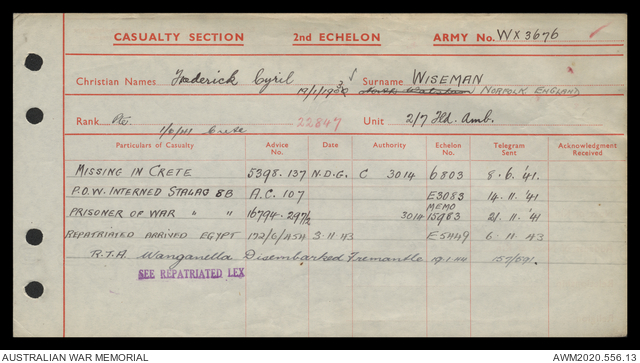 CASUALTY SECTION 2nd ECHELON ARMY No. WX3676
Christian Names Frederick Cyril Surname WISEMAN
NORFOLK ENGLAND
Rank Pte. 22847 Unit 2/7 Fld. Amb.
1/6/41 Crete
Particulars of Casualty Advice No. Date Authority Echelon No. Telegram Sent Acknowledgment Received
MISSING IN CRETE 5398.137 N.D.G. C 3014 6803 8.6.'41.
P.O.W. INTERNED STALAG 8B A.C. 107 E3083 14.11.'41
MEMO
PRISONER OF WAR " " 16794.297½ 3014 15963 21.11.'41
REPATRIATED ARRIVED EGYPT 172/6/454 3.11.43 E5449 6.11.43
R.T.A. Wanganella Disembarked Fremantle 19.1.44 157/591.
SEE REPATRIATED LEX
AUSTRALIAN WAR MEMORIAL AWM2020.556.13